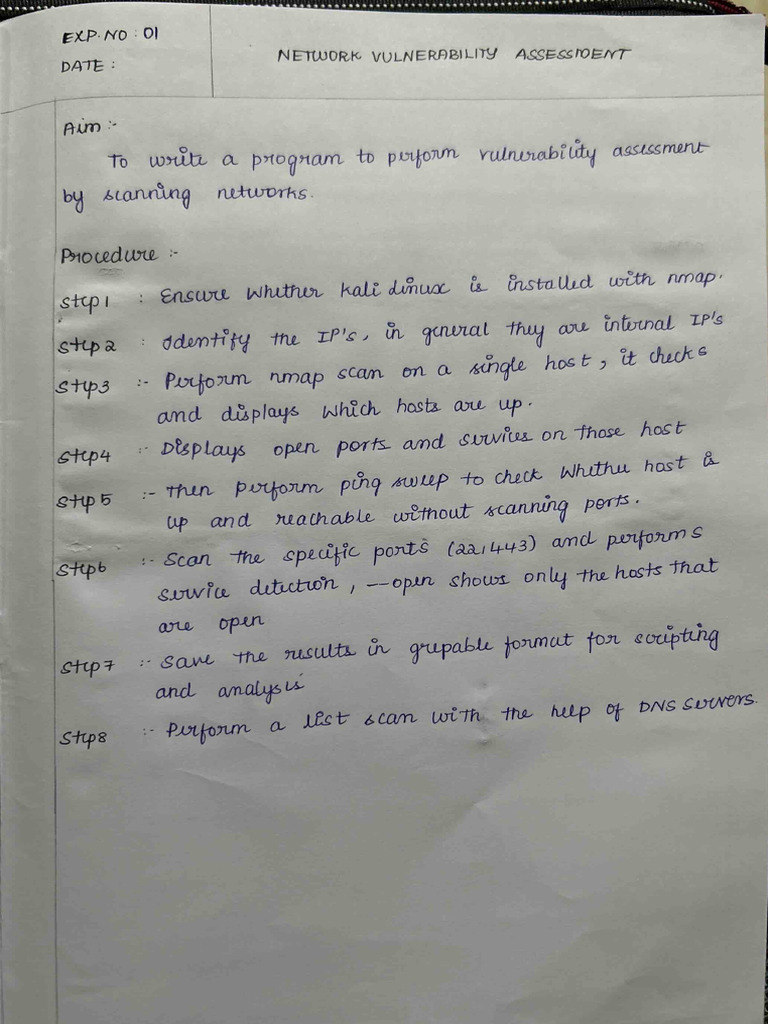 EXP.NO : 01
DATE :
NETWORK VULNERABILITY ASSESSMENT
Aim :-
To write a program to perform vulnerability assessment
by scanning networks.
Procedure :-
Step 1 : Ensure Whether Kali Linux is installed with nmap.
Step 2 : Identify the IP's, in general they are internal IP's
Step 3 :- Perform nmap scan on a single host, it checks
and displays which hosts are up.
Step 4 :- Displays open ports and services on those host
Step 5 :- Then perform ping sweep to check Whether host is
up and reachable without scanning ports.
Step 6 :- Scan the specific ports (22,443) and performs
service detection, --open shows only the hosts that
are open
Step 7 :- Save the results in grepable format for scripting
and analysis
Step 8 :- Perform a list scan with the help of DNS servers.